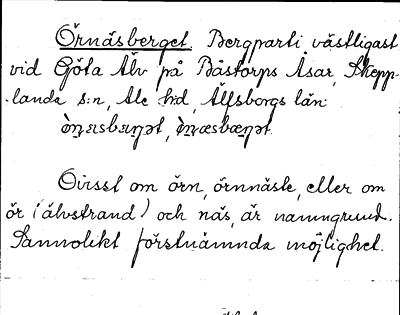 Örnäsberget. Bergparti västligast
vid Göta Älv på Båstorps Åsar, Skepp-
landa s:n, Ale hd, Älfsborgs län
Ovisst om örn, örnnäste, eller om
ör (älvstrand) och näs, är namngrund.
Sannolikt förstnämnda möjlighet.